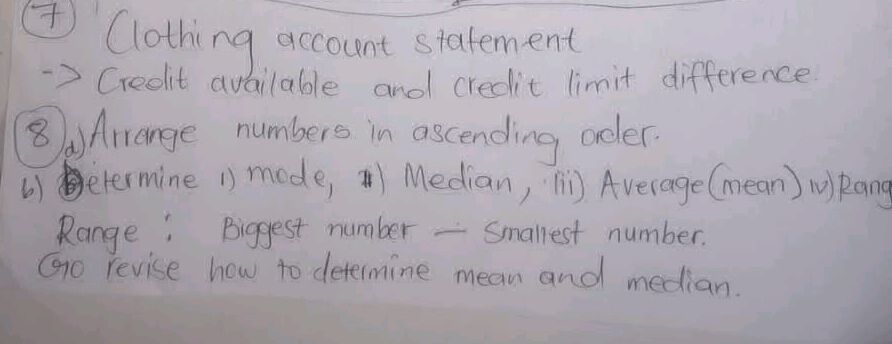 7 Clothing account statement
-> Credit available and credit limit difference.
8 a) Arrange numbers in ascending order.
b) Determine i) mode, ii) Median, iii) Average (mean) iv) Rang
Range : Biggest number - Smallest number.
Go revise how to determine mean and median.